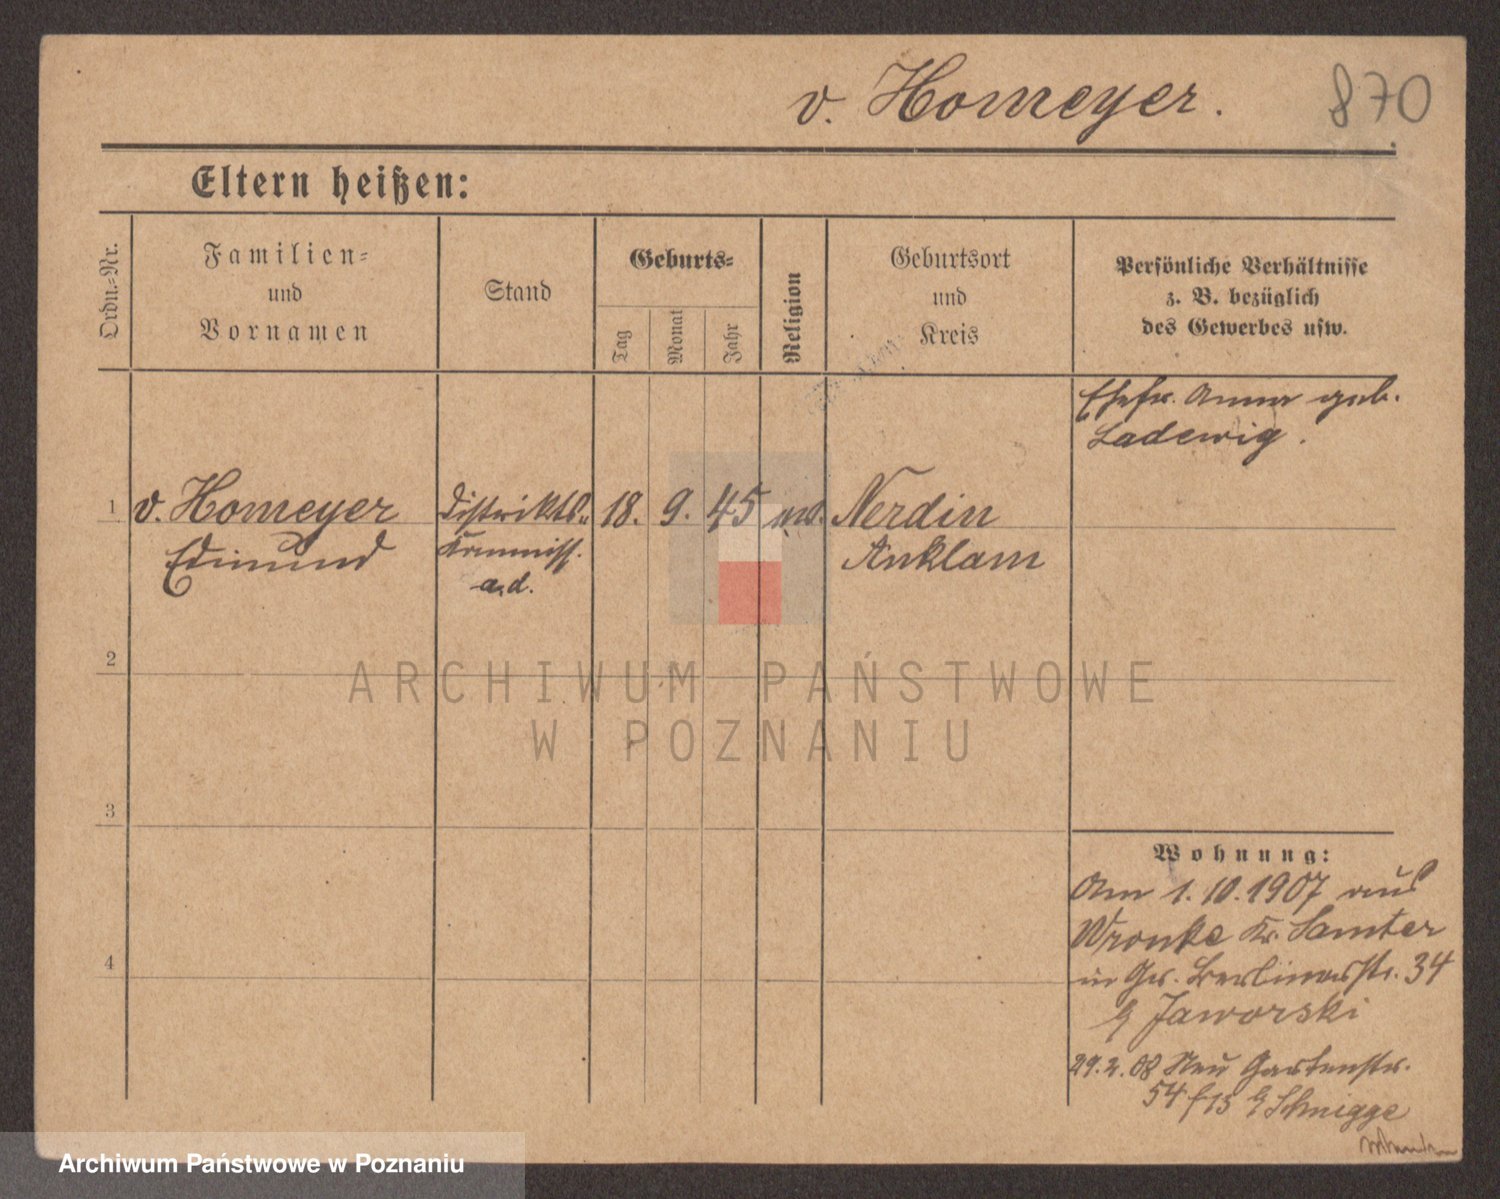 v. Homeyer.
870
Eltern heißen:
Ordn.-Nr.
Familien-
und
Vornamen
Stand
Geburts-
Tag
Monat
Jahr
Religion
Geburtsort
und
Kreis
Persönliche Verhältnisse
z. B. bezüglich
des Gewerbes usw.
Ehefr. Anna geb.
Ladewig.
1
v. Homeyer
Edmund
Distrikts-
Kommiss.
a. d.
18. 9. 45
Nerdin
Anklam
2
ARCHIWUM PAŃSTWOWE
W POZNANIU
3
4
Wohnung:
Am 1. 10. 1907 aus
Wronke Kr. Samter
in Gr. Berlinerstr. 34
Jaworski
29. 2. 08 Neu Gartenstr.
54 Schnigge
Archiwum Państwowe w Poznaniu